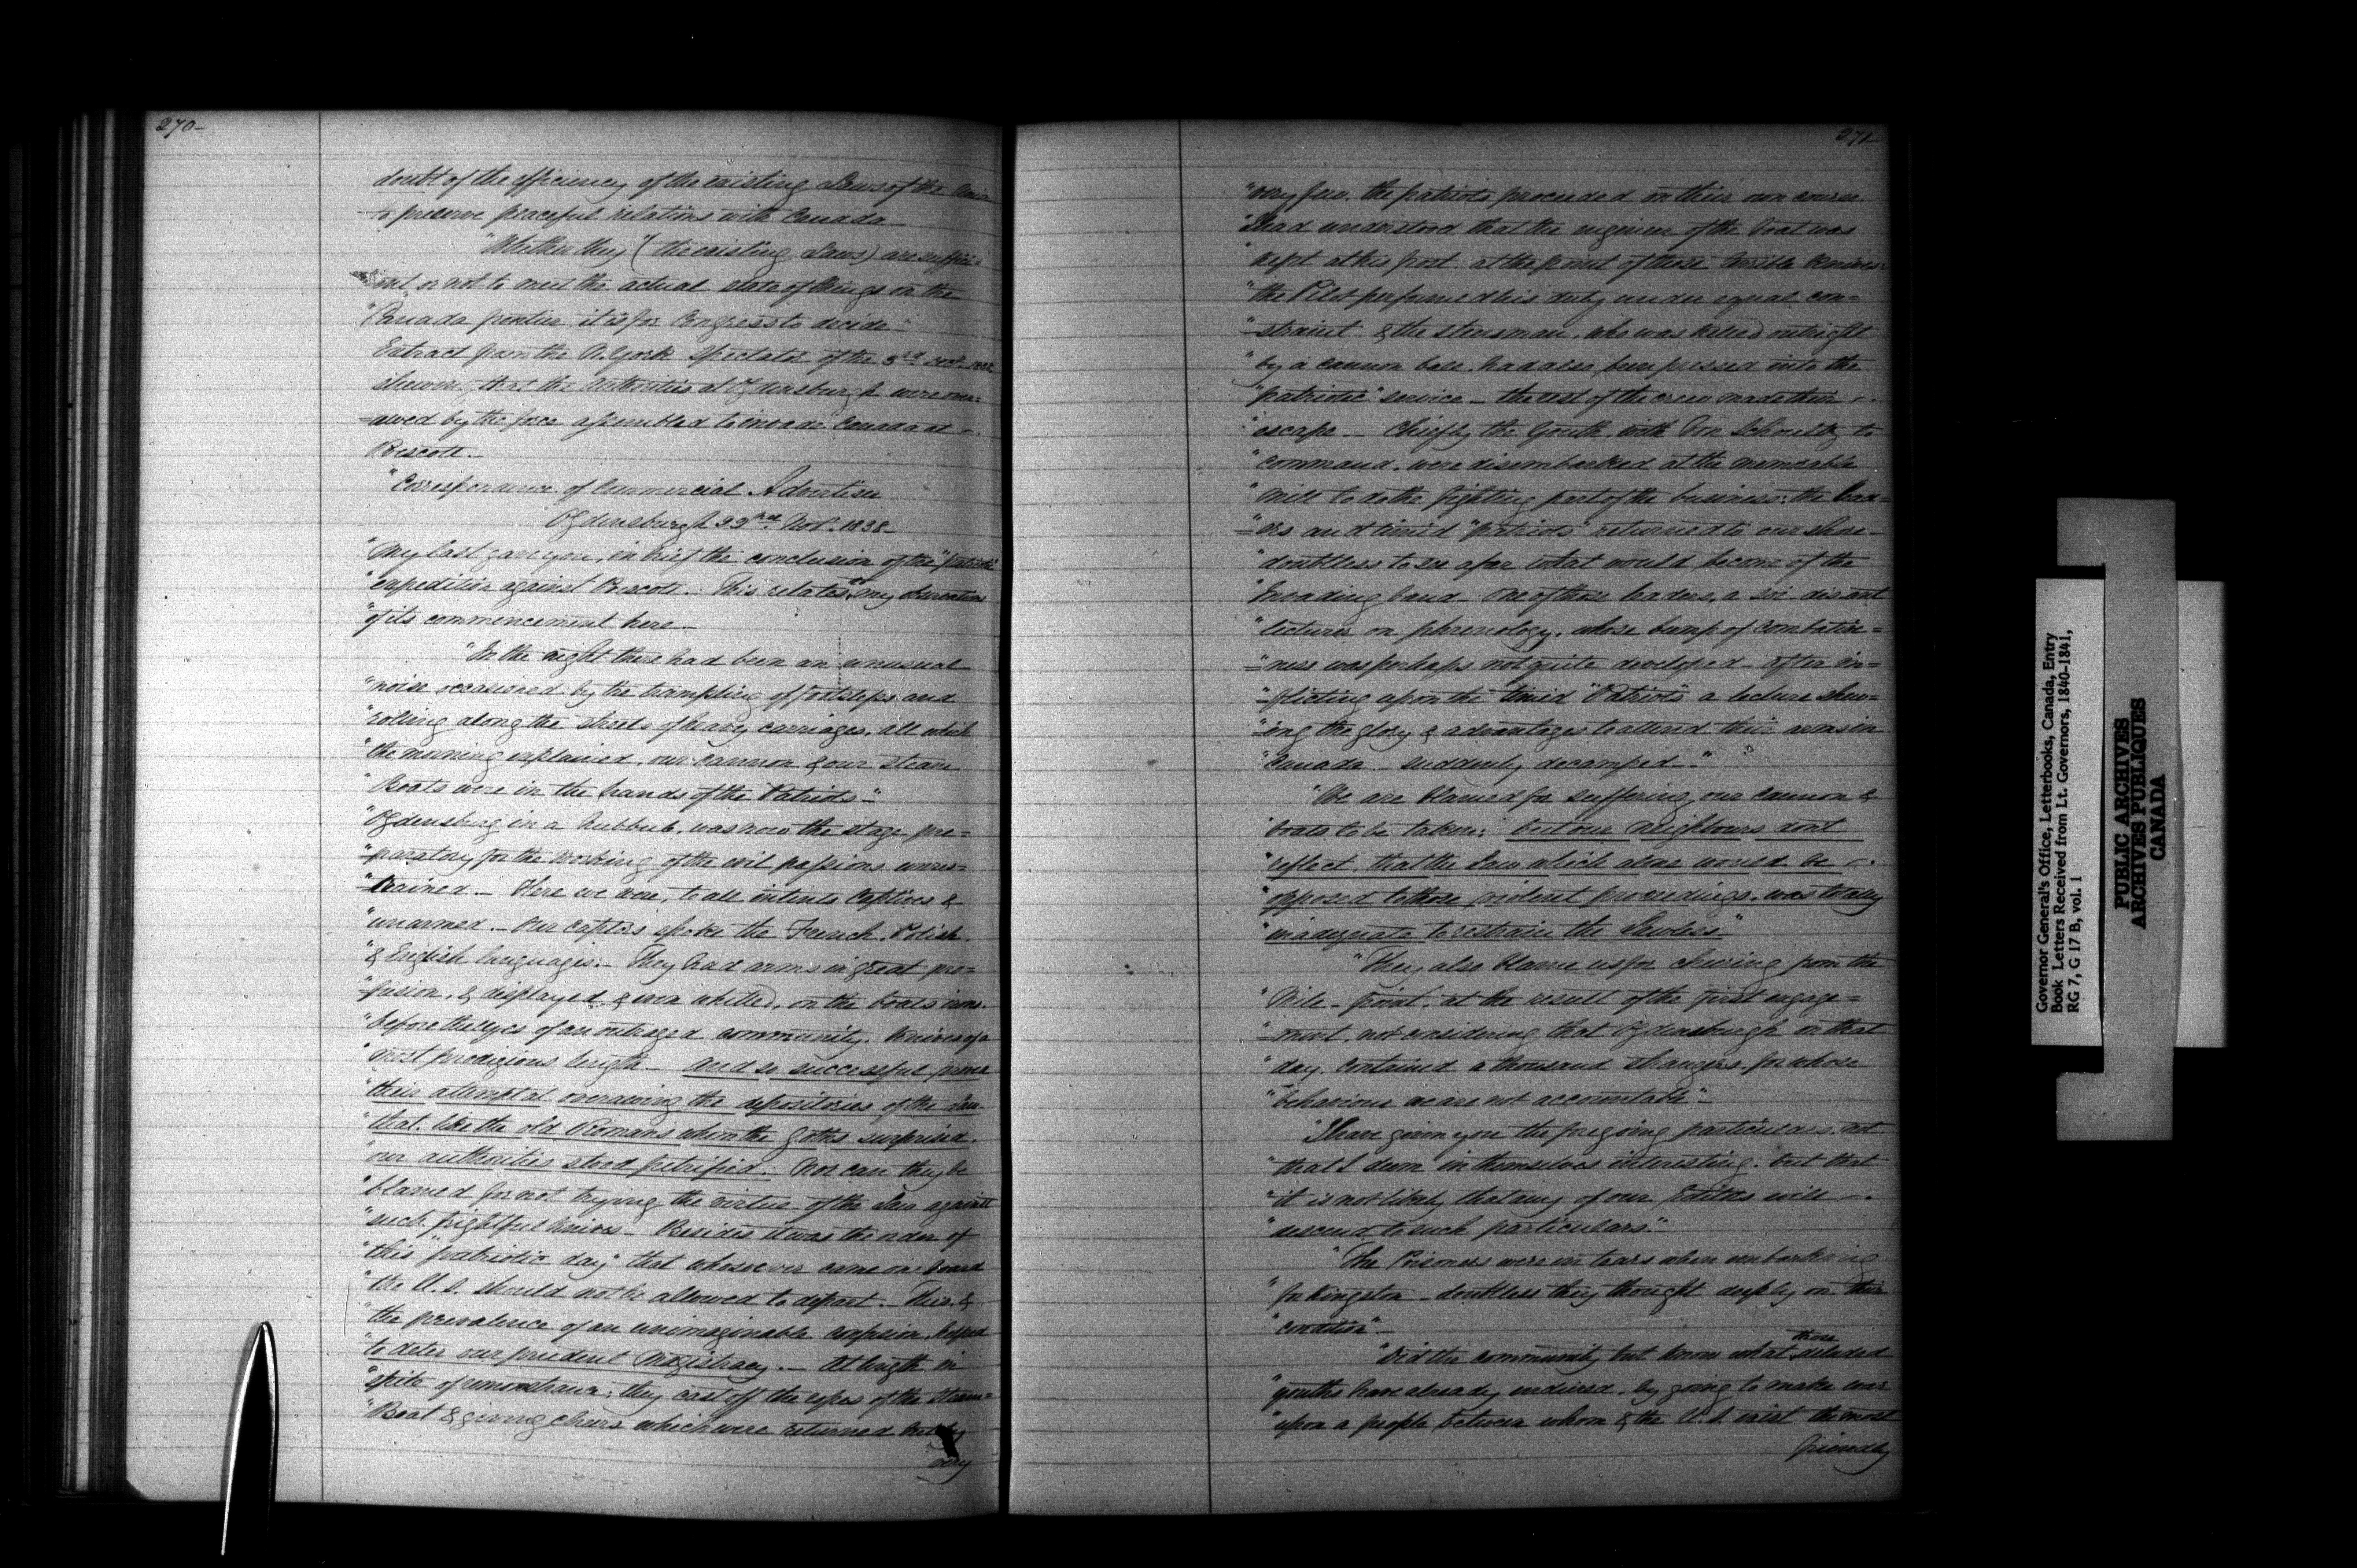 270-
doubt of the efficiency of the existing Laws of the Union
to preserve peaceful relations with Canada
"Whether they (the existing Laws) are suffici=
ent, or not to meet the actual state of things on the
"Canada frontier, it is for Congress to decide"
Extract from the N. York Spectator of the 3rd
shewing that the Authorities at Ogdensburgh were over=
=awed by the force assembled to invade Canada at
Prescott.-
"Correspondence of Commercial Advertiser
Ogdensburgh Nov. 1838-
"My last gave you, in brief the conclusion of the "patriotic
"expedition against Prescott. This relates to my observations
"of its commencement here-
"In the night there had been an unusual
"noise occasioned by the trampling of footsteps and
"rolling along the streets of heavy carriages, all which
"the morning explained, our cannon & our Steam
"Boats were in the hands of the Patriots-"
"Ogdensburg in a hubbub, was now the stage pre=
=paratory for the working of the evil passions unres=
=trained.- Here we were, to all intents Captives &
"unarmed.- Our Captors spoke the French, Polish
"& English languages.- They had arms in great pro=
=fusion, & displayed & even whetted, on the boats irons
"before the eyes of an outraged community. Knives of a
"most prodigious length- And so successful proved
"their attempt at overawing the depositories of the Law
"that, like the old Romans when the Goths surprised,
"our authorities stood petrified: Nor can they be
"blamed for not trying the virtue of the Law against
"such frightful knives- Besides it was the order of
"this "patriotic day" that whosoever came on board
"the U.S. should not be allowed to depart.- This, &
"the prevalence of an unimaginable confusion, helped
"to deter our prudent Magistracy.- At length in
"spite of remonstrance; they cast off the ropes of the Steam=
"Boat & giving cheers which were returned but by
very
271-
"very few, the patriots proceeded on their own course.
"I had understood that the engineer of the boat was
"kept at his post at the point of those terrible knives:
"the Pilot performed his duty under equal con=
=straint & the steersman, who was killed outright
"by a cannon ball, had also been pressed into the
"patriotic" service- the rest of the crew made their
"escape- Chiefly the Youth, with Von Schoultz to
"command, were disembarked at the memorable
"Mill to do the fighting part of the business: the lead=
=ers and timid "patriots" returned to our shore-
"doubtless to see afar what would become of the
"Invading band- One of those leaders, a soi-disant
"lecturer on phrenology, whose bump of combative=
=ness was perhaps not quite developed- after in=
=flicting upon the timid "Patriots" a lecture shew=
=ing the glory & advantages to attend their arms in
"Canada- suddenly decamped-"
"We are blamed for suffering our cannon &
"boats to be taken; but our neighbours don't
"reflect, that the Law which alone would be
"opposed to those violent proceedings, was totally
"inadequate to restrain the Lawless"
"They also blame us for cheering from the
"Mile-point, at the result of the first engage=
=ment, not considering that Ogdensburgh on that
"day, contained a thousand strangers for whose
"behaviour we are not accountable"-
"I have given you the foregoing particulars, not
"that I deem in themselves interesting, but that
"it is not likely that any of our Editors will
"descend to such particulars."
"The Prisoners were in tears when embarking
"for Kingston- doubtless they thought deeply on their
"condition"-
"Did the community but know what these deluded
"youths have already endured, by going to make war
"upon a people between whom & the U.S. exist the most
friendly
Governor General's Office, Letterbooks, Canada, Entry
Book Letters Received from Lt. Governors, 1840-1841,
RG 7, G 17 B, vol. 1
PUBLIC ARCHIVES
ARCHIVES PUBLIQUES
CANADA